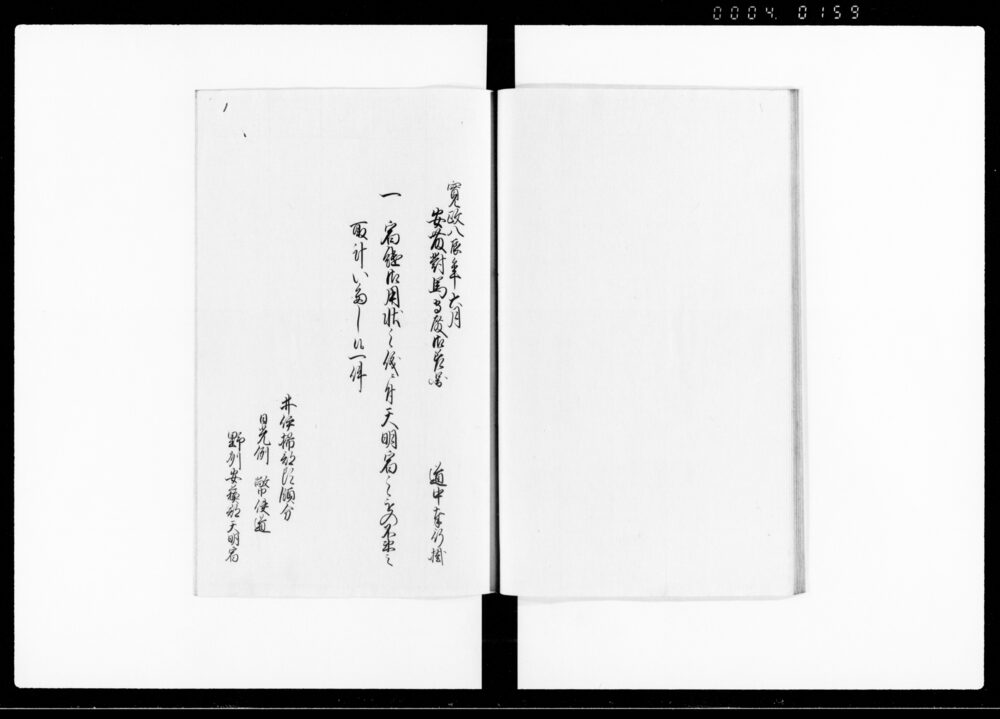 0004 0159
寛政八辰年六月
安藤對馬守殿御差圖
道中奉行掛
一 宿継御用状之儀ニ付天明宿之もの不束之
取計いたし候一件
井伊掃部頭領分
日光例幣使道
野州安蘇郡天明宿